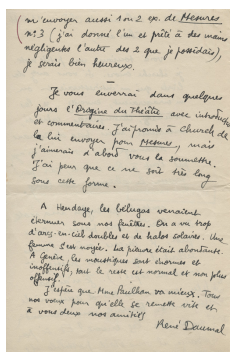 m'envoyer aussi 1 ou 2 ex. de Mesures
n°3 (j'ai donné l'un et prêté à des mains
négligentes l'autre des 2 que je possédais),
je serais bien heureux.
Je vous enverrai dans quelques
jours l'Origine du Théâtre avec introduction
et commentaires. J'ai promis à Church de
la lui envoyer pour Mesures, mais
j'aimerais d'abord vous la soumettre.
J'ai peur que ce ne soit très long
sous cette forme.
A Hendaye, les bélugas venaient
éternuer sous nos fenêtres. On a vu trop
d'arcs-en-ciel doubles et de halos solaires. Une
femme s'est noyée. La pieuvre était abondante.
A Genève, les moustiques sont énormes et
inoffensifs, tout le reste est normal et non plus
offensif.
J'espère que Mme Paulhan va mieux. Tous
nos vœux pour qu'elle se remette vite et
à vous deux nos amitiés
René Daumal